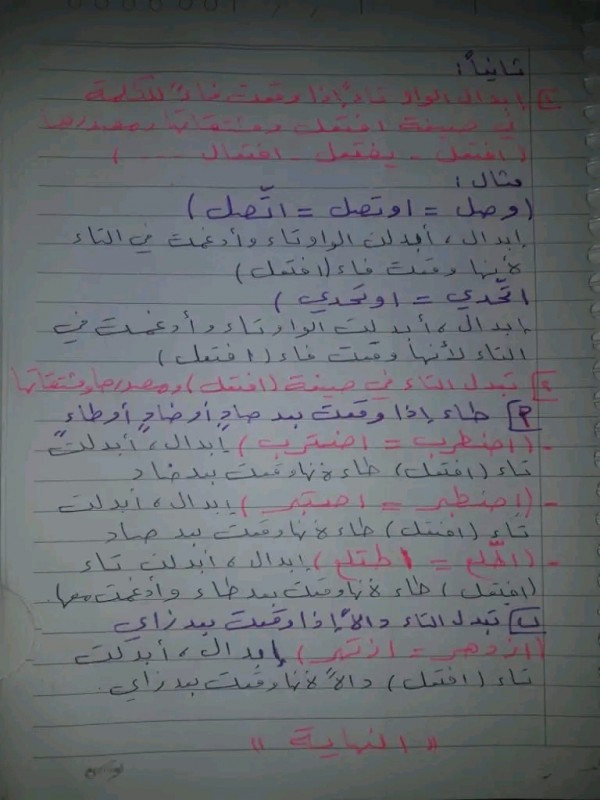 ثانياً:
1] إبدال الواو تاءً إذا وقعت فاءً للكلمة
في صيغة افتعل ومشتقاتها ومصدرها
(افتعل - يفتعل - افتعال ......)
مثال:
(وصل = اوتصل = اتّصل)
إبدال، أبدلت الواو تاء وأدغمت في التاء
لأنها وقعت فاء (افتعل)
اتّحدي = اوتحدي)
إبدال، أبدلت الواو تاء وأدغمت في
التاء لأنها وقعت فاء (افتعل)
2] تبدل التاء في صيغة (افتعل) ومصدرها ومشتقاتها
P] طاء إذا وقعت بعد صادٍ أو ضادٍ أو طاءٍ
- (اضطرب = اضترب) إبدال، أبدلت
تاء (افتعل) طاء لأنها وقعت بعد ضاد
- (اصطبر = اصتبر) إبدال، أبدلت
تاء (افتعل) طاء لأنها وقعت بعد صاد
- (اطّلع = اطتلع) إبدال، أبدلت تاء
(افتعل) طاء لأنها وقعت بعد طاء وأدغمت معها.
ب] تبدل التاء دالاً إذا وقعت بعد زاي
(ازدهر = ازتهر) إبدال، أبدلت
تاء (افتعل) دالاً لأنها وقعت بعد زاي.
"النهاية"